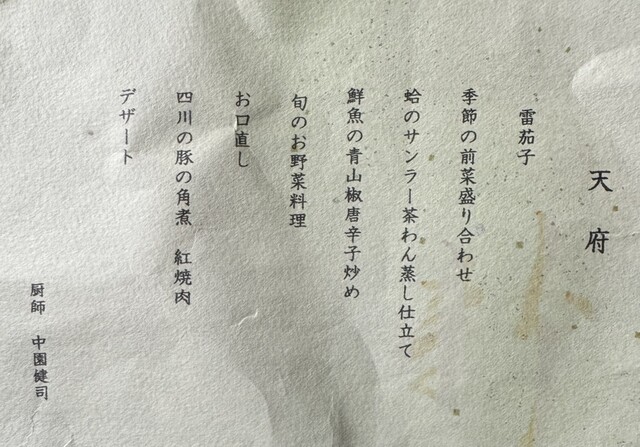 天府
雷茄子
季節の前菜盛り合わせ
蛤のサンラー茶わん蒸し仕立て
鮮魚の青山椒唐辛子炒め
旬のお野菜料理
お口直し
四川の豚の角煮　紅焼肉
デザート
厨師　中園健司